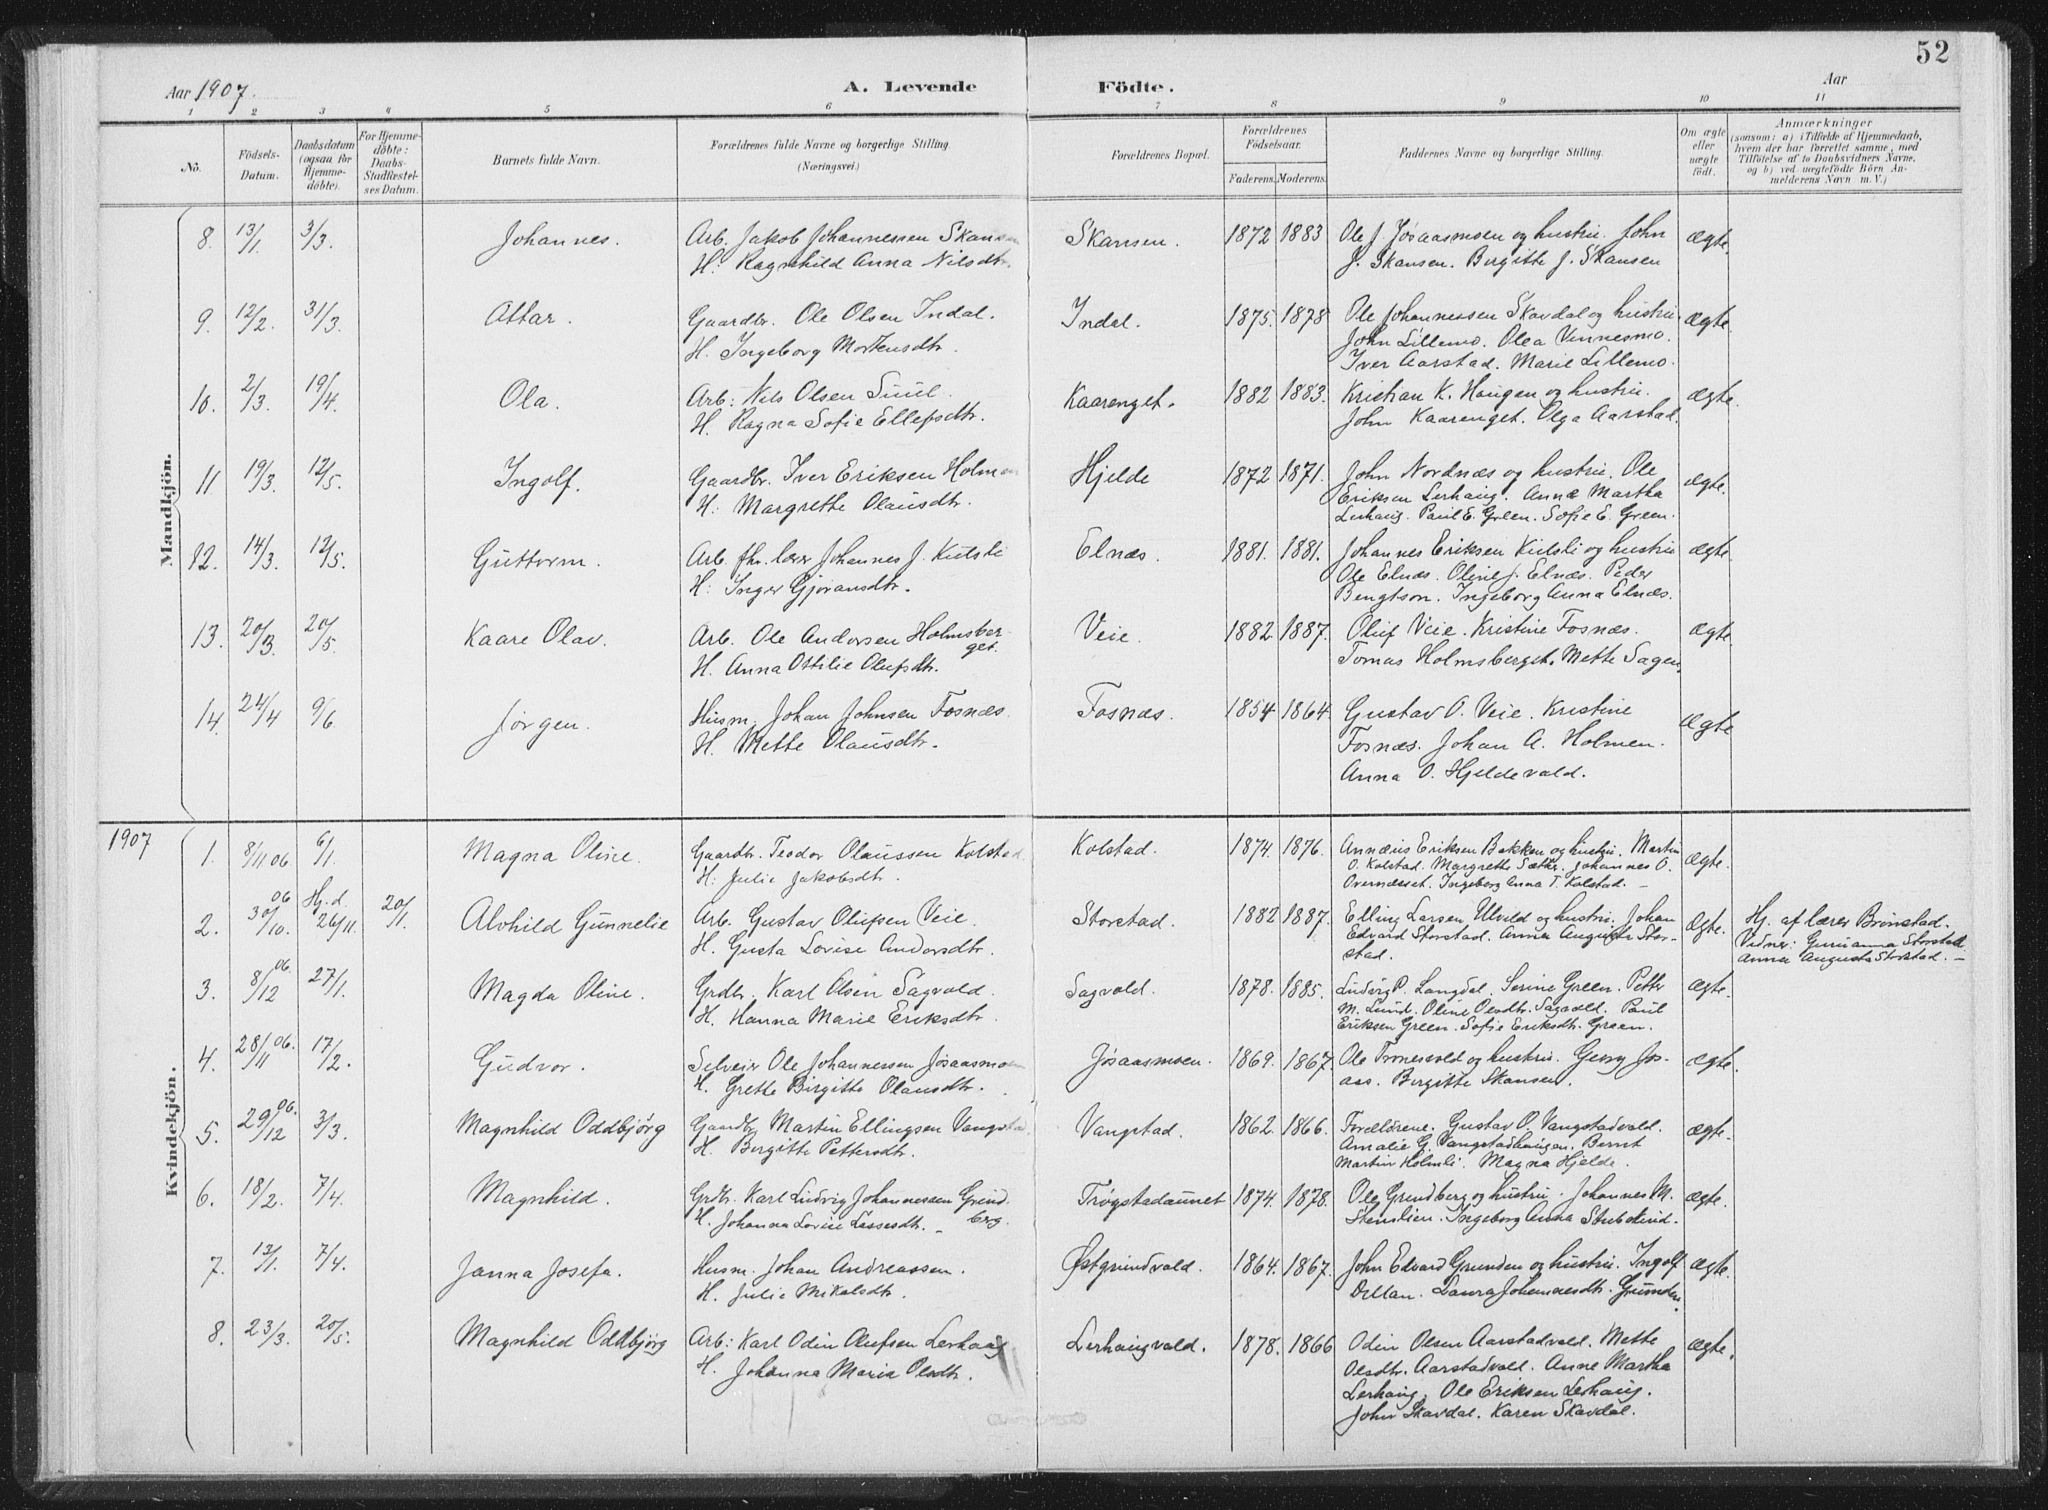 52
Aar 1907.
A. Levende Födte.
Aar
1 2 3 4 5 6 7 8 9 10 11
No.
Födsels-Datum.
Daabsdatum (ogsaa for Hjemmedöbte).
For Hjemmedöbte: Daabs-Stadfæstelses Datum.
Barnets fulde Navn.
Forældrenes fulde Navne og borgerlige Stilling (Næringsvei.)
Forældrenes Bopæl.
Forældrenes Födselsaar.
Faderens. Moderens.
Faddernes Navne og borgerlige Stilling.
Om ægte eller uægte födt.
Anmærkninger
(saasom: a) i Tilfælde af Hjemmedaab, hvem der har forrettet samme, med Tilföielse af to Daabsvidners Navne, og b) ved uægtefödte Börn Anmelderens Navn m. V.)
Mandkjön.
8. 13/1. 3/3. Johannes. Arb. Jakob Johannessen Skansen Skansen. 1872 1883 Ole J. Jøsaasmoen og hustru. John ægte.
H: Ragnhild Anna Nilsdtr. J. Skansen. Birgitte J. Skansen
9. 12/2. 31/3. Attar. Gaardbr. Ole Olsen Indal. Indal. 1875. 1878 Ole Johannessen Skavdal og hustru. ægte.
H. Ingeborg Mortensdtr. John Lillemo. Olea Vinnesmo.
Iver Aarstad. Marie Lillemo.
10. 2/3. 19/4. Ola. Arb: Nils Olsen Suul. Kaarenget. 1882 1883. Kristian K. Haugen og hustru. ægte.
H. Ragna Sofie Ellefsdtr. John Kaarenget. Olga Aarstad.
11. 19/3. 12/5. Ingolf. Gaardbr. Iver Eriksen Holmen Hjelde 1872 1871. John Nordnæs og hustru. Ole ægte.
H: Margrethe Olausdtr. Eriksen Lerhaug. Anne Martha
Lerhaug. Paul E. Green. Sofie E. Green.
12. 14/3. 12/5. Guttorm. Arb. fhv. lærer Johannes J. Kulsli Elnæs. 1881. 1881. Johannes Eriksen Kulsli og hustru ægte.
H: Inger Gjøransdtr. Ole Elnæs. Oline J. Elnæs. Peder
Bengtson. Ingeborg Anna Elnæs.
13. 20/3. 20/5. Kaare Olav. Arb. Ole Andersen Holmsberget. Veie. 1882 1887. Oluf Veie. Kristine Fosnæs. ægte.
H. Anna Ottilie Olufsdtr. Tomas Holmsberget. Mette Sagen.
14. 24/4 9/6 Jørgen. Husm. Johan Johnsen Fosnæs. Fosnæs. 1854 1864. Gustav O. Veie. Kristine ægte
H. Mette Olausdtr. Fosnæs. Johan A. Holmen.
Anna O. Hjeldevald.
1907
Kvindekjön.
1. 8/11 06. 6/1. Magna Oline. Gaardbr. Teodor Olaussen Kolstad. Kolstad. 1874. 1876. Annæus Eriksen Bakken og hustru. Martin ægte.
H: Julie Jakobsdtr. O. Kolstad. Margrethe Sætre. Johannes O.
Overnæsset. Ingeborg Anna T. Kolstad.
2. 30/10. 06 Hj.d. 26/11. 20/1. Alvhild Gunnelie Arb. Gustav Olufsen Veie. Storstad. 1882 1887. Elling Larsen Ulvild og hustru. Johan ægte. Hj. af lærer Brønstad.
H. Gusta Lovise Andorsdtr. Edvard Storstad. Anna Augusta Storstad. Vidner: Gurianna Storstad.
Anna Augusta Storstad.
3. 8/12 06. 27/1. Magda Oline. Grdbr. Karl Olsen Sagvold. Sagvold. 1878. 1885. Ludvig P. Langdal. Serine Green. Petter ægte.
H. Hanna Marie Eriksdtr. M. Lund. Oline Olsdtr. Sagvold. Paul
Eriksen Green. Sofie Eriksdtr. Green.
4. 28/11 06. 17/2. Gudvor. Selveier Ole Johannessen Jøsaasmoen Jøsaasmoen. 1869. 1867. Ole Tronesvold og hustru. Georg Jøsaas. ægte.
H. Grethe Birgitte Olausdtr. Birgitte Skansen.
5. 29/12 06. 3/3. Magnhild Oddbjørg Gaardbr. Martin Ellingsen Vangstad. Vangstad. 1862. 1866. Forældrene. Gustav O. Vangstadvald. ægte.
H. Birgitte Pettersdtr. Amalie G. Vangstadhaugen. Bernt
Martin Holmli. Magna Hjelde.
6. 18/2. 7/4. Magnhild. Grdbr. Karl Ludvig Johannessen Grundberg. Trøgstadaunet 1874. 1878. Ole Grundberg og hustru. Johannes M. ægte.
H. Johanna Lovise Lassesdtr. Stenslien. Ingeborg Anna
7. 13/1. 7/4. Janna Josefa. Husm. Johan Andreassen. Østgrundvald. 1864. 1867. John Edvard Grunden og hustru. Ingolf ægte.
H. Julie Mikalsdtr. Dillan. Laura Johannesdtr. Grunden.
8. 23/3. 20/5. Magnhild Oddbjørg Arb: Karl Odin Olufsen Lerhaug Lerhaugvald. 1878. 1866 Odin Olsen Aarstadvald. Mette ægte.
H. Johanna Maria Olsdtr. Olsdtr. Aarstadvald. Anne Martha
Lerhaug. Ole Eriksen Lerhaug.
John Skavdal. Karen Skavdal.